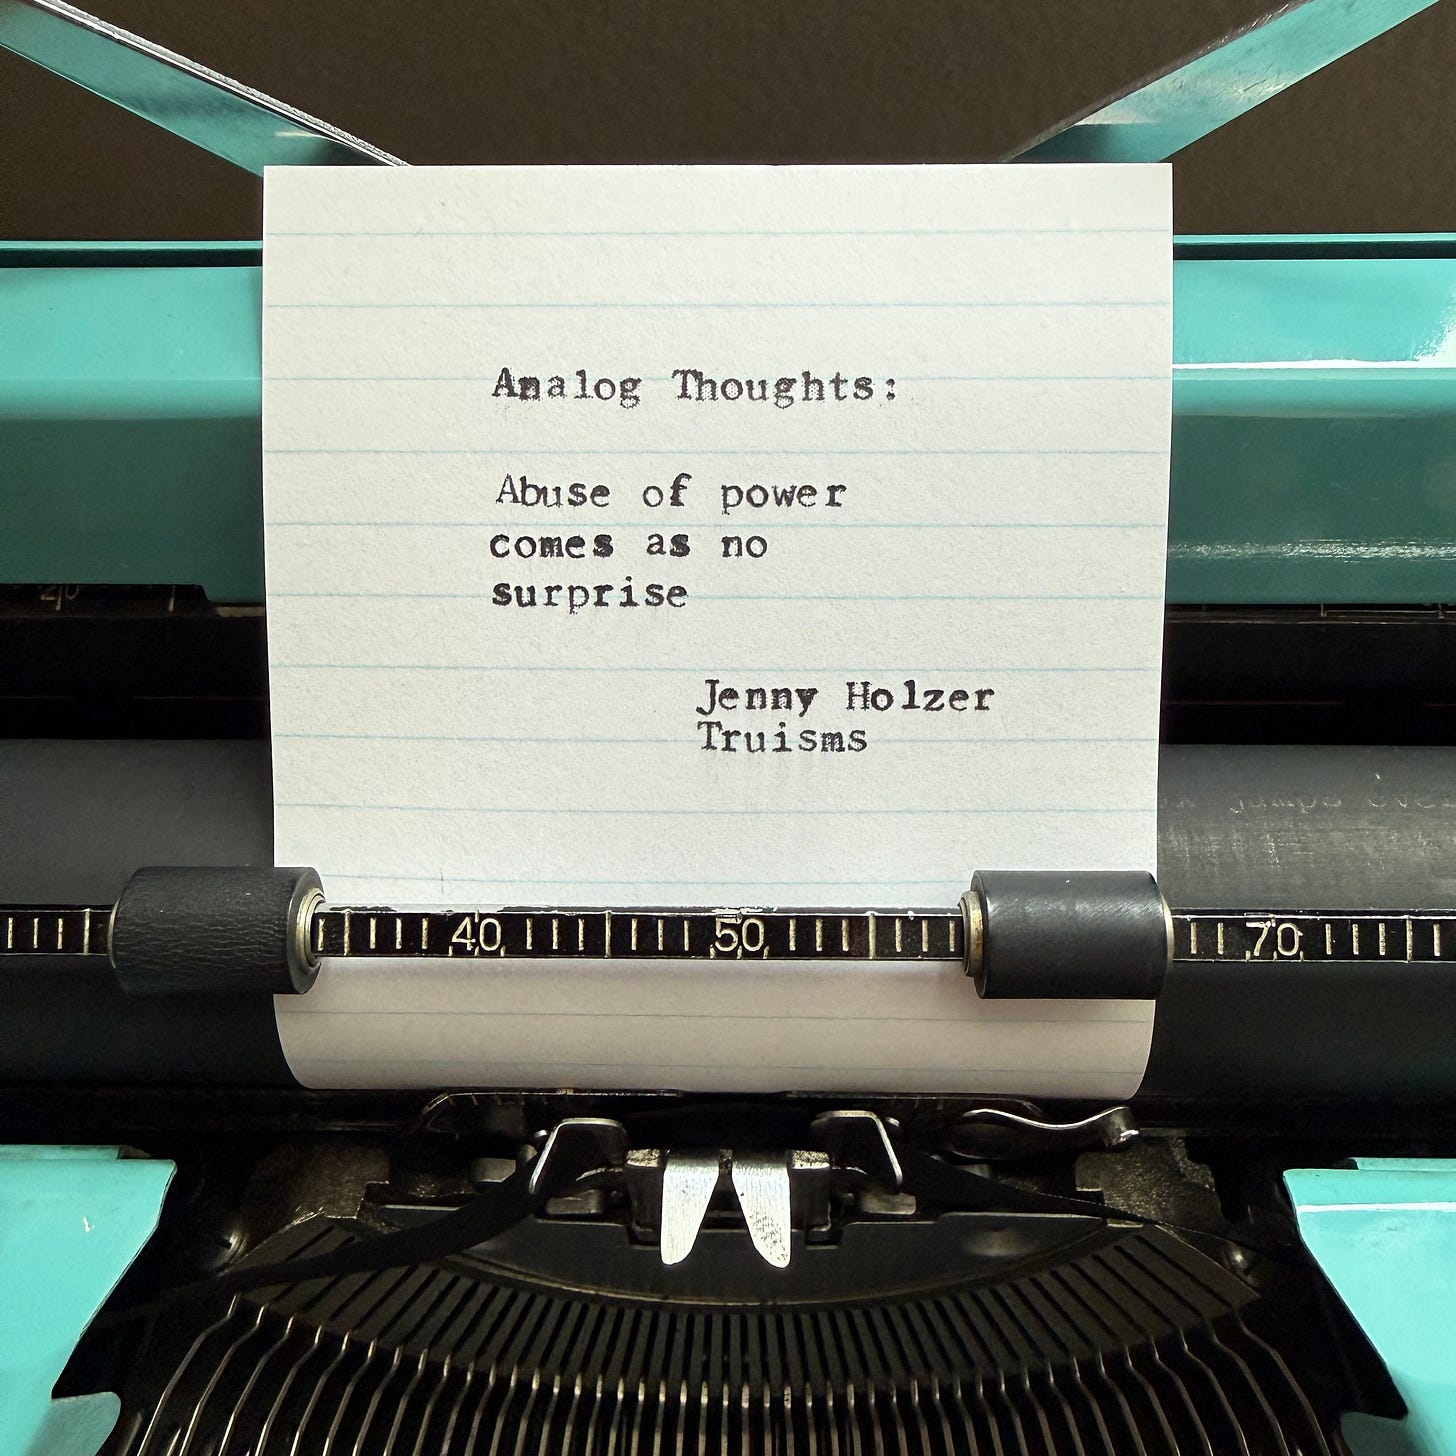 Analog Thoughts:
Abuse of power
comes as no
surprise
Jenny Holzer
Truisms
40 50 70